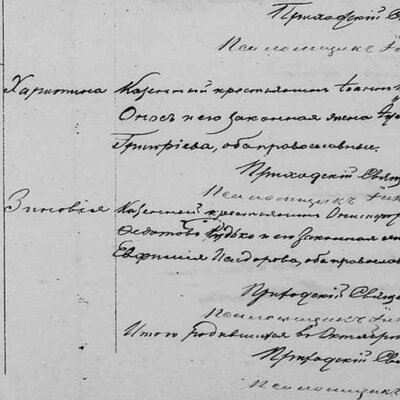 Приходскій
Псаломщикъ
Харитина Казенный крестьянинъ Іоаннъ
Оносъ и его законная жена
Григоріева, оба православные.
Приходскій Свящ
Псаломщикъ
Зиновія Казенный крестьянинъ
Федотовъ Рудько и его законная
Евфимія Исидорова, оба православ
Приходскій Свяще
Псаломщикъ
Итого родившихся въ Октябр
Приходскій Свящ
Псаломщикъ